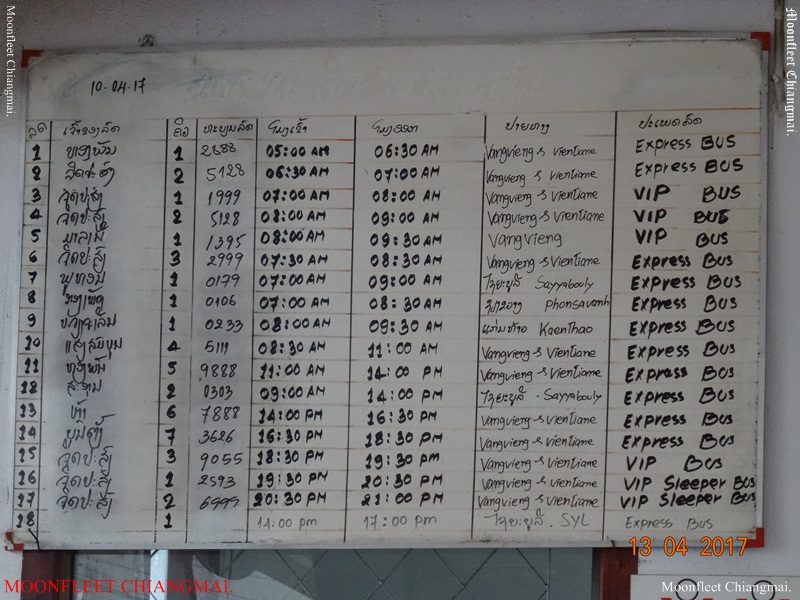 Moonfleet Chiangmai.
Moonfleet Chiangmai.
10-04-17
ລດ ເຈົ້າຂອງລົດ ຄິວ ທະບຽນລົດ ໂມງເຂົ້າ ໂມງອອກ ປາຍທາງ ປະເພດລົດ
1 1 2888 05:00 AM 06:30 AM Vangvieng - Vientiane Express BUS
2 2 5128 06:30 AM 07:00 AM Vangvieng - Vientiane Express BUS
3 1 1999 07:00 AM 08:00 AM Vangvieng - Vientiane VIP BUS
4 2 5128 08:00 AM 09:00 AM Vangvieng - Vientiane VIP BUS
5 1 1395 08:00 AM 09:30 AM Vangvieng VIP BUS
6 3 2999 07:30 AM 08:30 AM Vangvieng - Vientiane Express BUS
7 1 0179 07:00 AM 08:30 AM ໄຊຍະບູລີ Sayyabouly Express BUS
8 1 0106 07:00 AM 08:30 AM Phonsavanh Express BUS
9 1 0233 08:00 AM 09:30 AM ແກ່ນທ້າວ KaenThao Express BUS
10 4 5111 08:30 AM 11:00 AM Vangvieng - Vientiane Express BUS
11 5 9888 11:00 AM 14:00 PM Vangvieng - Vientiane Express BUS
12 2 0303 09:00 AM 14:00 PM ໄຊຍະບູລີ - Sayyabouly Express BUS
13 6 7888 14:00 PM 16:30 PM Vangvieng - Vientiane Express BUS
14 7 3626 16:30 PM 18:30 PM Vangvieng - Vientiane Express BUS
15 3 9055 18:30 PM 19:30 pm Vangvieng - Vientiane VIP BUS
16 1 2593 19:30 PM 20:30 PM Vangvieng - Vientiane VIP Sleeper BUS
17 2 6999 20:30 PM 21:00 PM Vangvieng - Vientiane VIP Sleeper BUS
18 1 14:00 pm 17:00 pm ໄຊຍະບູລີ . SYL Express Bus
13 04 2017
MOONFLEET CHIANGMAI.
Moonfleet Chiangmai.